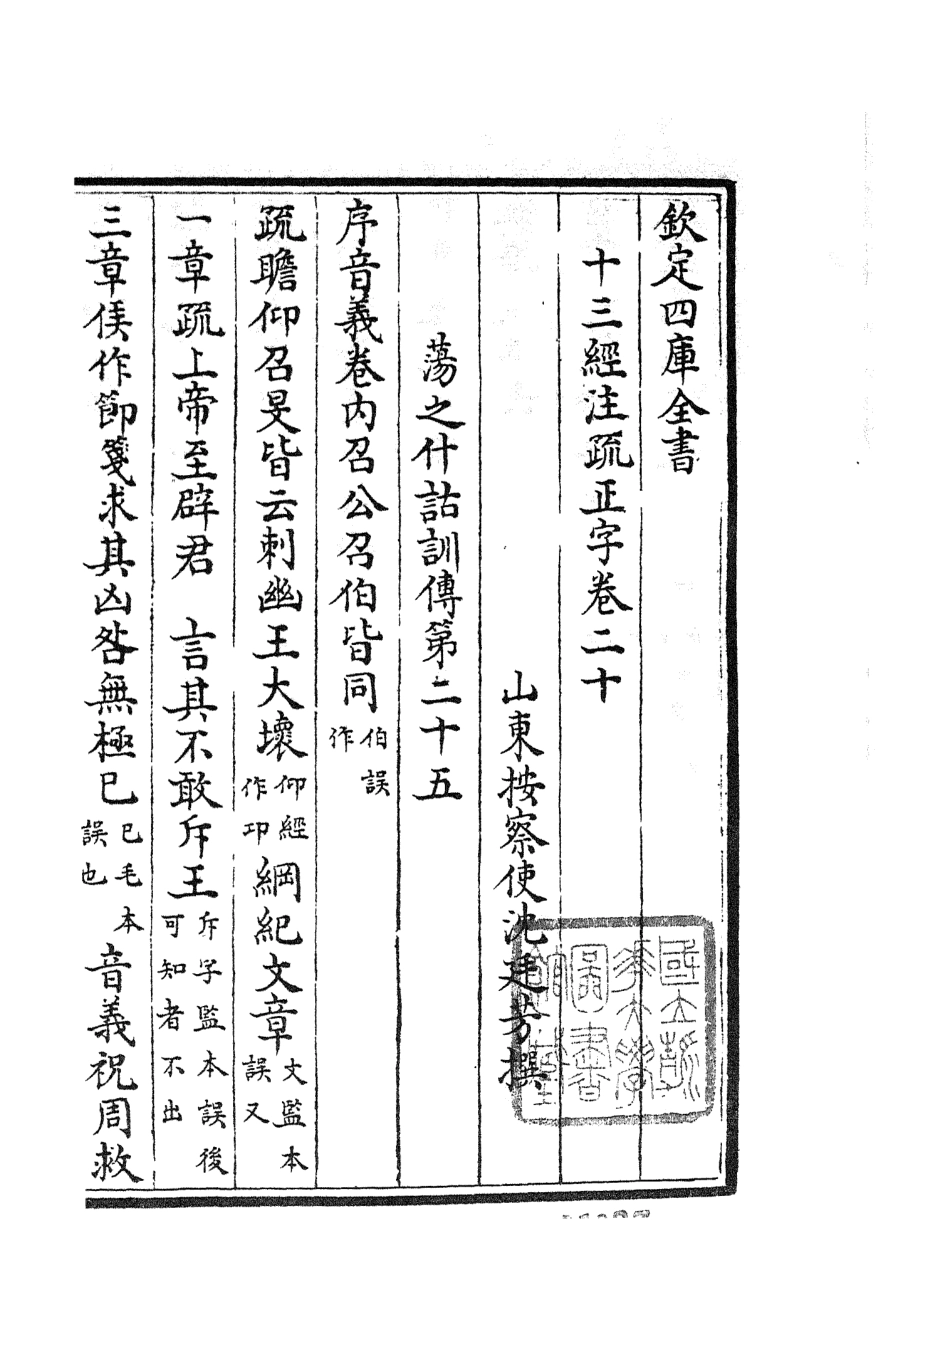 欽定四庫全書
十三經注疏正字卷二十
山東按察使沈廷芳撰
蕩之什詁訓傳第二十五
序音義卷内召公召伯皆同伯誤作
疏瞻仰召旻皆云刺幽王大壞仰經作卬綱紀文章文監本誤又
一章疏上帝至辟君　言其不敢斥王斥字監本誤後可知者不出
三章侯作節箋求其凶咎無極已已毛本誤也音義祝周救
國立浙江大學圖書館藏